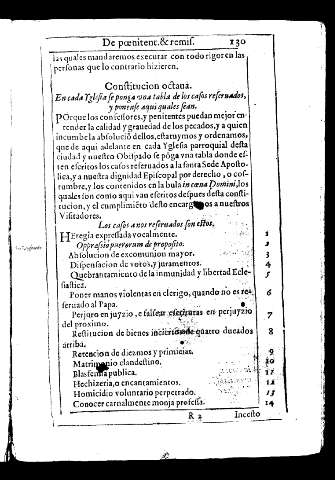 De pœnitent. & remis. 130
las quales mandaremos executar con todo rigor en las
personas que lo contrario hizieren.
Constitucion octana.
En cada Yglesia se ponga vna tabla de los casos reseruados,
y ponense aqui quales sean.
POrque los confessores, y penitentes puedan mejor en-
tender la calidad y grauedad de los pecados, y a quien
incumbe la absolució dellos, estatuymos y ordenamos,
que de aqui adelante en cada Yglesia parroquial desta
ciudad y nuestro Obispado se póga vna tabla donde es-
ten escritos los casos reseruados a la santa Sede Aposto-
lica, y a nuestra dignidad Episcopal por derecho, o cos-
tumbre, y los contenidos en la bula in cœna Domini, los
quales son como aqui van escritos despues desta consti-
tucion, y el cumplimiéto desto encargamos a nuestros
Visitadores.
Los casos a nos reseruados son estos,
HEregia expressada vocalmente. 1
Oppressio puerorum de proposito. 2
Absolucion de excomunion mayor. 3
Dispensacion de votos, y juramentos. 4
Quebrantamiento de la inmunidad y libertad Ecle- 5
siastica.
Poner manos violentas en clerigo, quando no es re- 6
seruado al Papa.
Perjuro en juyzio, o falsear escrituras en perjuyzio 7
del proximo.
Restitucion de bienes inciertos de quatro ducados 8
arriba.
Retencion de diezmos y primicias. 9
Matrimonio clandestino. 10
Blasfemia publica. 11
Hechizeria, o encantamientos. 12
Homicidio voluntario perpetrado. 13
Conocer carnalmente monja professa. 14
R 2 Incesto